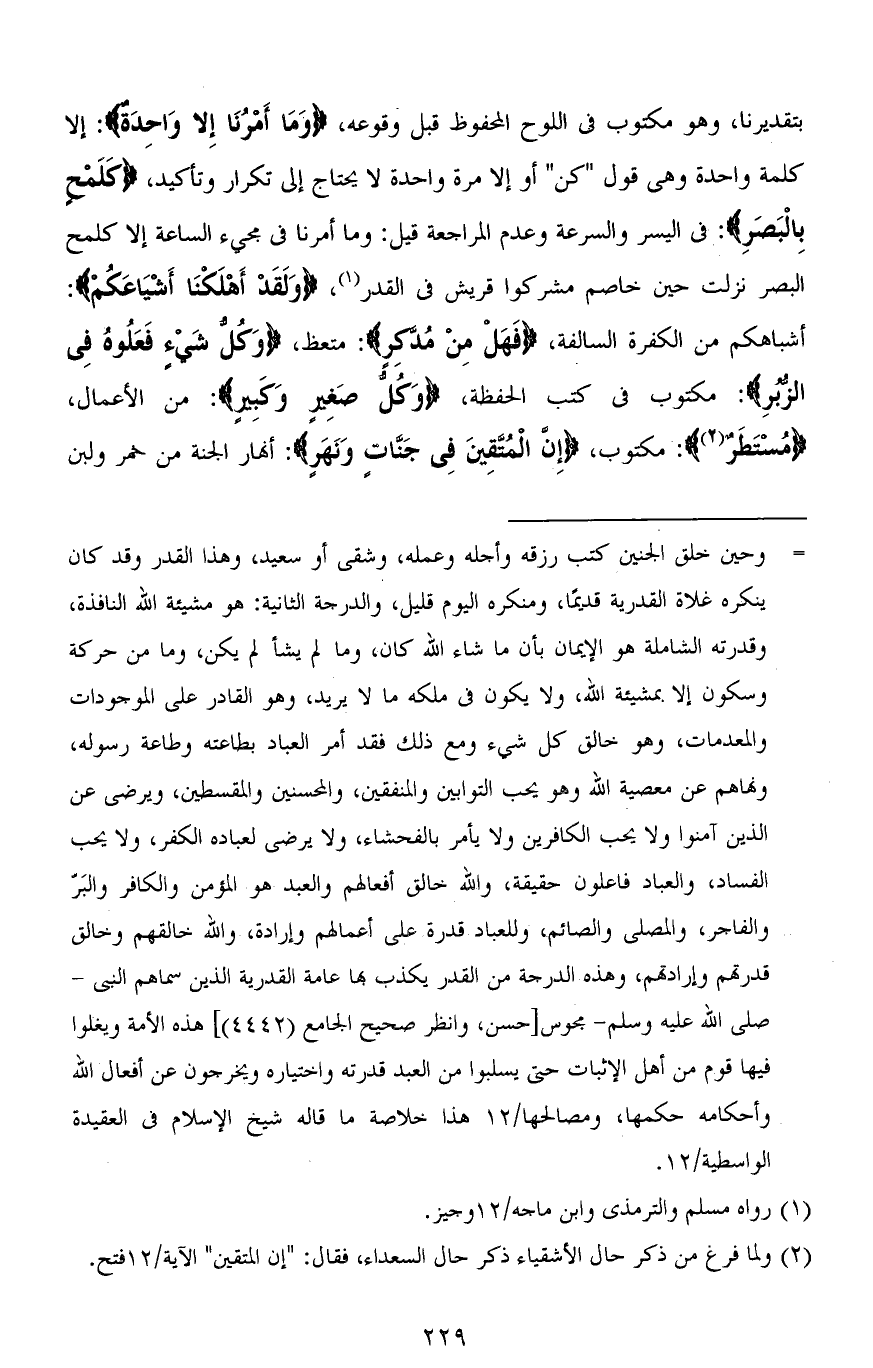 بتقديرنا، وهو مكتوب فى اللوح المحفوظ قبل وقوعه، ﴿وَمَا أَمْرُنَا إِلا وَاحِدَةٌ﴾: إلا
كلمة واحدة وهى قول "كن" أو إلا مرة واحدة لا يحتاج إلى تكرار وتأكيد، ﴿كَلَمْحٍ
بِالْبَصَرِ﴾: فى اليسر والسرعة وعدم المراجعة قيل: وما أمرنا فى مجيء الساعة إلا كلمح
البصر نزلت حين خاصم مشركوا قريش فى القدر(١)، ﴿وَلَقَدْ أَهْلَكْنَا أَشْيَاعَكُمْ﴾:
أشباهكم من الكفرة السالفة، ﴿فَهَلْ مِنْ مُدَّكِرٍ﴾: متعظ، ﴿وَكُلُّ شَيْءٍ فَعَلُوهُ فِى
الزُّبُرِ﴾: مكتوب فى كتب الحفظة، ﴿وَكُلُّ صَغِيرٍ وَكَبِيرٍ﴾: من الأعمال،
﴿مُسْتَطَرٌ(٢)﴾: مكتوب، ﴿إِنَّ الْمُتَّقِينَ فِى جَنَّاتٍ وَنَهَرٍ﴾: أنهار الجنة من خمر ولبن
= وحين خلق الجنين كتب رزقه وأجله وعمله، وشقى أو سعيد، وهذا القدر وقد كان
ينكره غلاة القدرية قديمًا، ومنكره اليوم قليل، والدرجة الثانية: هو مشيئة الله النافذة،
وقدرته الشاملة هو الإيمان بأن ما شاء الله كان، وما لم يشأ لم يكن، وما من حركة
وسكون إلا بمشيئة الله، ولا يكون فى ملكه ما لا يريد، وهو القادر على الموجودات
والمعدمات، وهو خالق كل شيء ومع ذلك فقد أمر العباد بطاعته وطاعة رسوله،
ونهاهم عن معصية الله وهو يحب التوابين والمنفقين، والمحسنين والمقسطين، ويرضى عن
الذين آمنوا ولا يحب الكافرين ولا يأمر بالفحشاء، ولا يرضى لعباده الكفر، ولا يحب
الفساد، والعباد فاعلون حقيقة، والله خالق أفعالهم والعبد هو المؤمن والكافر والبَرّ
والفاجر، والمصلى والصائم، وللعباد قدرة على أعمالهم وإرادة، والله خالقهم وخالق
قدرتهم وإرادتهم، وهذه الدرجة من القدر يكذب بها عامة القدرية الذين سماهم النبى -
صلى الله عليه وسلم- مجوس[حسن، وانظر صحيح الجامع (٤٤٤٢)] هذه الأمة ويغلوا
فيها قوم من أهل الإثبات حتى يسلبوا من العبد قدرته واختياره ويخرجون عن أفعال الله
وأحكامه حكمها، ومصالحها/١٢ هذا خلاصة ما قاله شيخ الإسلام فى العقيدة
الواسطية/١٢.
(١) رواه مسلم والترمذى وابن ماجه/١٢وجيز.
(٢) ولما فرغ من ذكر حال الأشقياء ذكر حال السعداء، فقال: "إن المتقين" الآية/١٢فتح.
٢٢٩